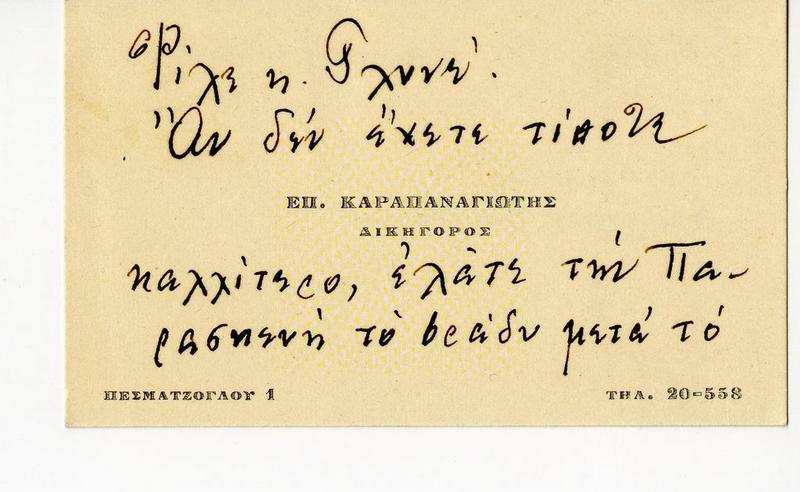 Φίλε κ. Γλυνέ.
Ἂν δέν ἔχετε τίποτε
ΕΠ. ΚΑΡΑΠΑΝΑΓΙΩΤΗΣ
ΔΙΚΗΓΟΡΟΣ
καλλίτερο, ἐλᾶτε τήν Πα-
ρασκευή τό βράδυ μετά τό
ΠΕΣΜΑΤΖΟΓΛΟΥ 1
ΤΗΛ. 20-558